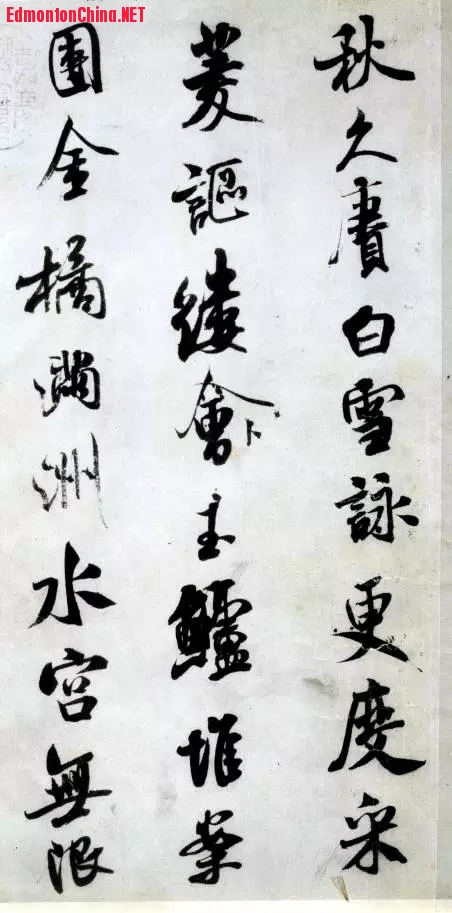 EdmontonChina.NET
秋久賡白雪詠更度采
菱謳縷會卜玉鱸堆案
團金橘滿洲水宮無限